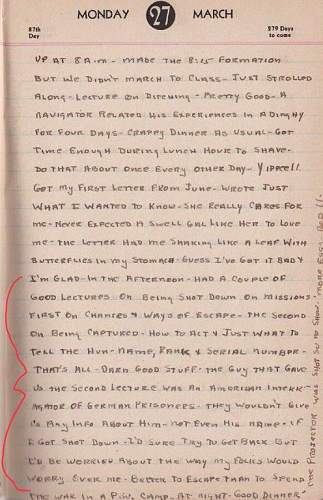 MONDAY 27 MARCH
87th Day
279 Days to come
UP AT 8 A.M - MADE THE 8:15 FORMATION
BUT WE DIDN'T MARCH TO CLASS - JUST STROLLED
ALONG - LECTURE ON DITCHING - PRETTY GOOD - A
NAVIGATOR RELATED HIS EXPERIENCES IN A DINGHY
FOR FOUR DAYS - CRAPPY DINNER AS USUAL - GOT
TIME ENOUGH DURING LUNCH HOUR TO SHAVE -
DO THAT ABOUT ONCE EVERY OTHER DAY - YIPPEE!!
GOT MY FIRST LETTER FROM JUNE - WROTE JUST
WHAT I WANTED TO KNOW - SHE REALLY CARES FOR
ME - NEVER EXPECTED A SWELL GAL LIKE HER TO LOVE
ME - THE LETTER HAD ME SHAKING LIKE A LEAF WITH
BUTTERFLIES IN MY STOMACH - GUESS I'VE GOT IT BAD &
I'M GLAD - IN THE AFTERNOON - HAD A COUPLE OF
GOOD LECTURES ON BEING SHOT DOWN ON MISSIONS
FIRST ON CHANCES & WAYS OF ESCAPE - THE SECOND
ON BEING CAPTURED - HOW TO ACT & JUST WHAT TO
TELL THE HUN - NAME, RANK & SERIAL NUMBER -
THAT'S ALL - DARN GOOD STUFF - THE GUY THAT GAVE
US THE SECOND LECTURE WAS AN AMERICAN INTERR-
AGATOR OF GERMAN PRISONERS - THEY WOULDN'T GIVE
US ANY INFO ABOUT HIM - NOT EVEN HIS NAME - IF
I GOT SHOT DOWN - I'D SURE TRY TO GET BACK BUT
I'D BE WORRIED ABOUT THE WAY MY FOLKS WOULD
WORRY OVER ME - BETTER TO ESCAPE THAN TO SPEND
THE WAR IN A P.W. CAMP - AT NIGHT - GOOD DINNER
THE PROJECTOR WAS SHOT SO NO SHOW